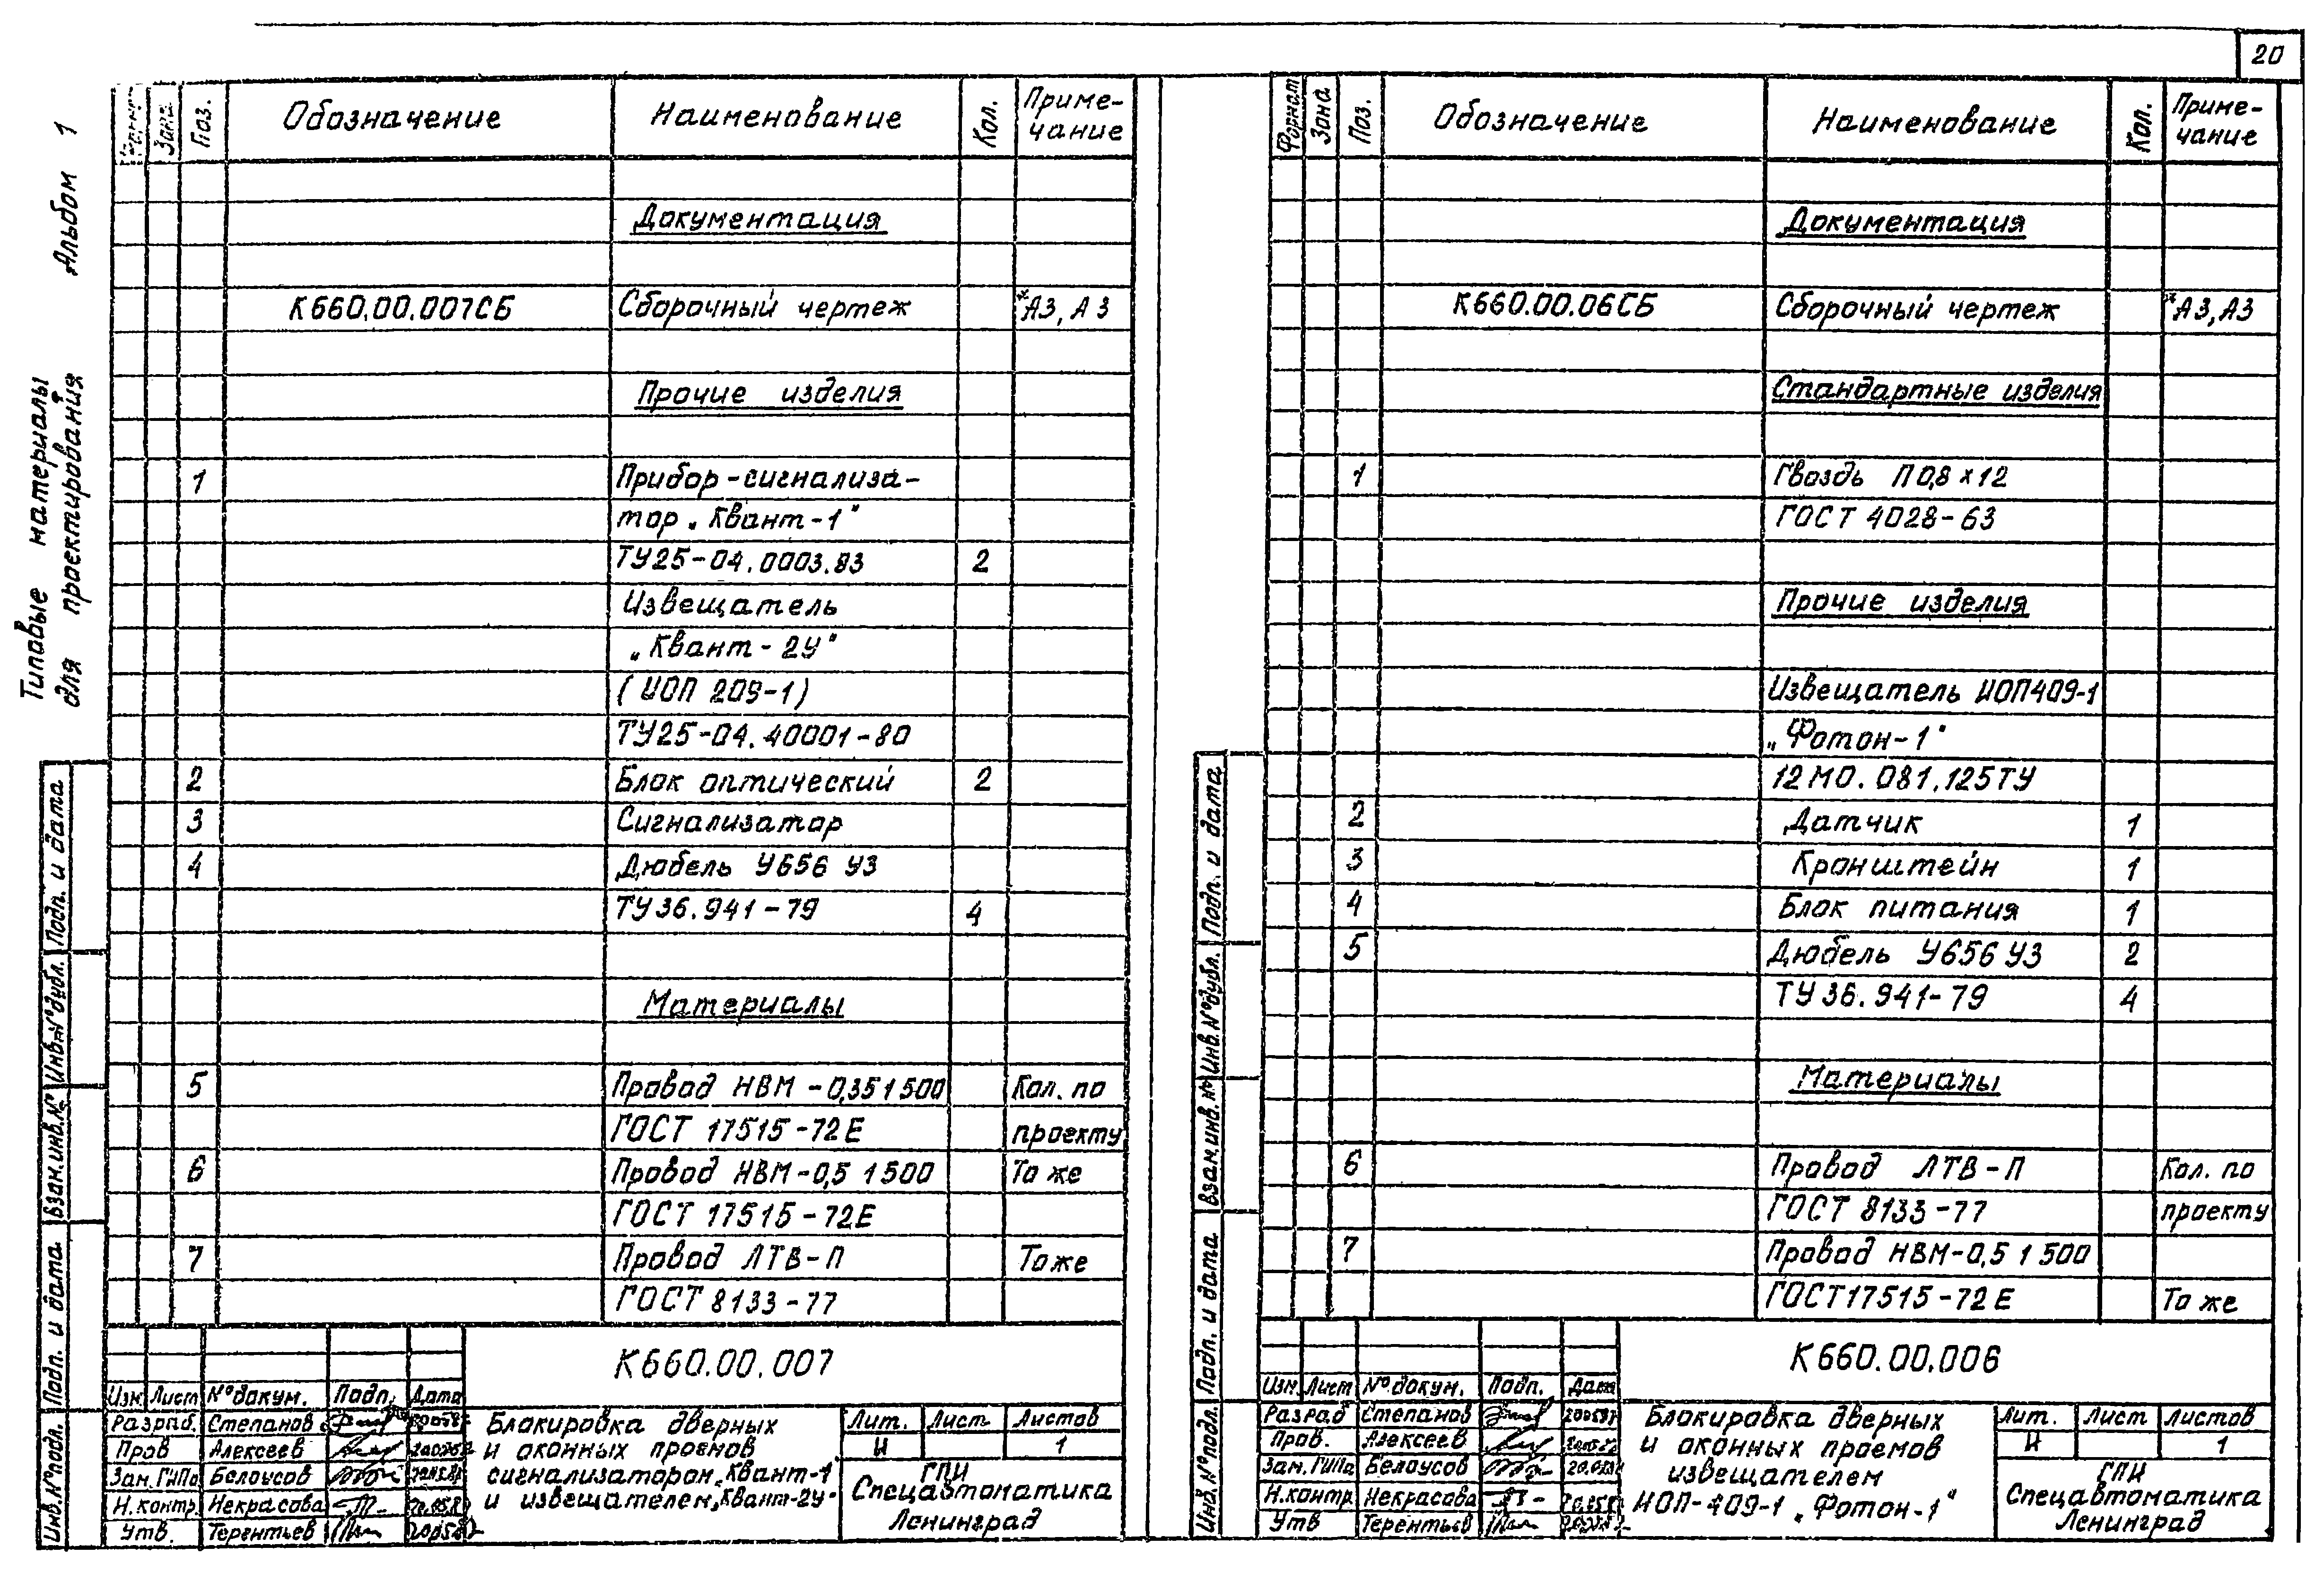 20
Альбом 1
Типовые материалы
для проектирования
Зона
Поз.
Обозначение
Наименование
Кол.
Приме-
чание
Документация
К660.00.007СБ Сборочный чертеж *А3, А3
Прочие изделия
1 Прибор-сигнализа-
тор „Квант-1"
ТУ25-04.0003.83 2
Извещатель
„Квант-2У"
(ИОП 209-1)
ТУ25-04.40001-80
2 Блок оптический 2
3 Сигнализатор
4 Дюбель У656 У3
ТУ36.941-79 4
Материалы
5 Провод НВМ-0,351500 Кол. по
ГОСТ 17515-72Е проекту
6 Провод НВМ-0,5 1500 То же
ГОСТ 17515-72Е
7 Провод ЛТВ-П То же
ГОСТ 8133-77
Подп. и дата
Инв.№дубл.
Взам.инв.№
Подп. и дата
Инв.№подл.
К660.00.007
Изм. Лист №докум. Подп. Дата
Разраб. Степанов
Пров Алексеев
Зам.ГИПа Белоусов
Н.контр. Некрасова
Утв. Терентьев
Блокировка дверных
и оконных проемов
сигнализатором„Квант-1
и извещателем„Квант-2У"
Лит. Лист Листов
И 1
ГПИ
Спецавтоматика
Ленинград
Формат
Зона
Поз.
Обозначение
Наименование
Кол.
Приме-
чание
Документация
К660.00.06СБ Сборочный чертеж *А3,А3
Стандартные изделия
1 Гвоздь П 0,8×12
ГОСТ 4028-63
Прочие изделия
Извещатель ИОП409-1
„Фотон-1"
12МО.081.125ТУ
2 Датчик 1
3 Кронштейн 1
4 Блок питания 1
5 Дюбель У656 У3 2
ТУ36.941-79 4
Материалы
6 Провод ЛТВ-П Кол. по
ГОСТ 8133-77 проекту
7 Провод НВМ-0,5 1500
ГОСТ17515-72Е То же
Подп. и дата
Инв.№дубл.
Взам.инв.№
Подп. и дата
Инв.№подл.
К660.00.006
Изм. Лист №.докум. Подп. Дата
Разраб Степанов
Пров. Алексеев
Зам.ГИПа Белоусов
Н.контр. Некрасова
Утв Терентьев
Блокировка дверных
и оконных проемов
извещателем
ИОП-409-1 „Фотон-1"
Лит. Лист Листов
И 1
ГПИ
Спецавтоматика
Ленинград